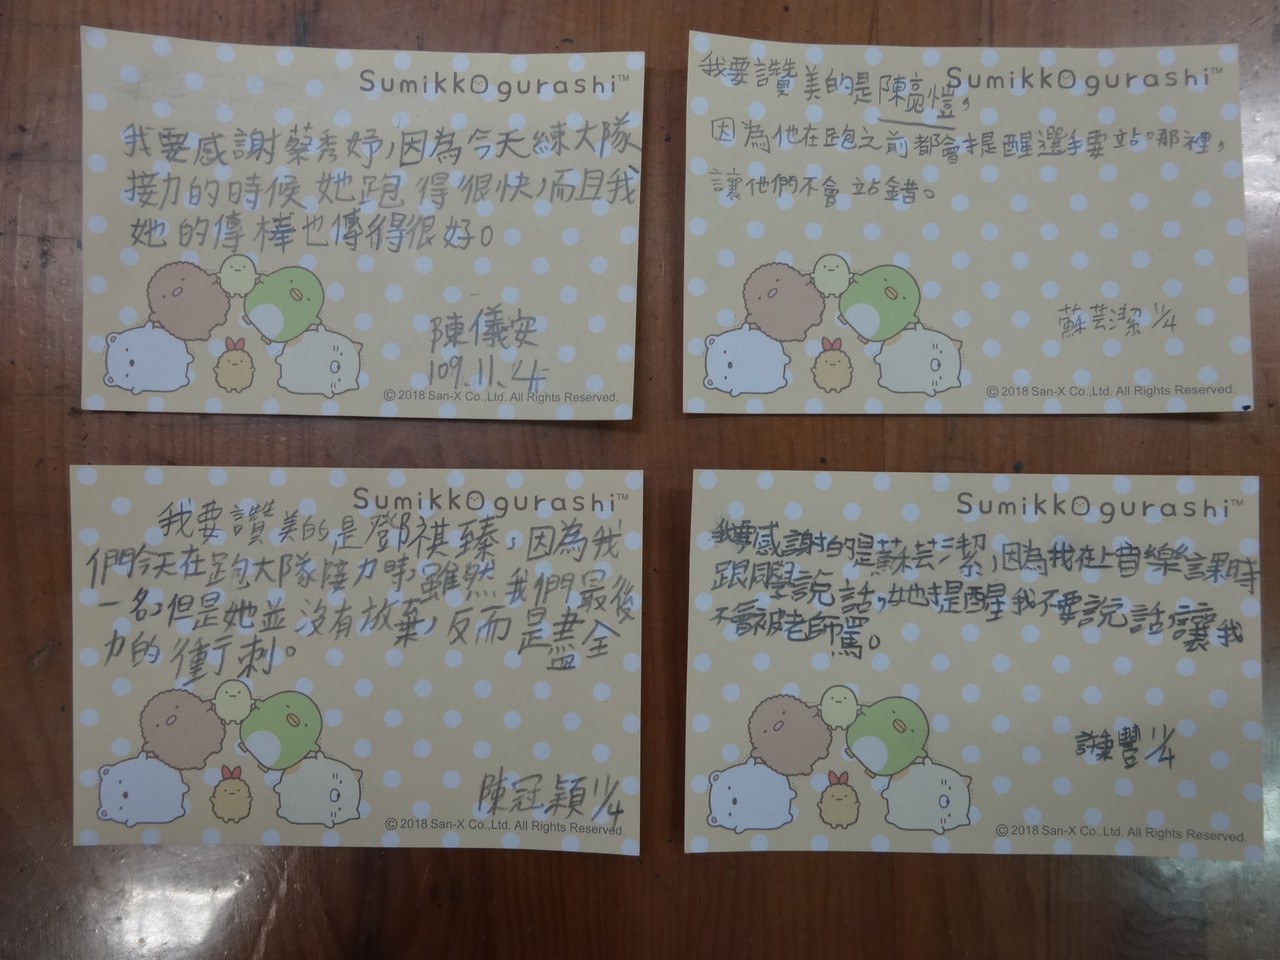 Sumikkogurashi™
我要感謝蔡秀妤,因為今天練大隊
接力的時候她跑得很快,而且我
她的傳棒也傳得很好。
陳儀安
109.11.4
©2018 San-X Co.,Ltd. All Rights Reserved.
Sumikkogurashi™
我要讚美的是陳亮愷,
因為他在跑之前都會提醒選手要站哪裡,
讓他們不會站錯。
蘇芸潔 11/4
©2018 San-X Co.,Ltd. All Rights Reserved.
Sumikkogurashi™
我要讚美的是鄧祺臻,因為我
們今天在跑大隊接力時,雖然我們最後
一名,但是她並沒有放棄,反而是盡全
力的衝刺。
陳冠穎 11/4
©2018 San-X Co.,Ltd. All Rights Reserved.
Sumikkogurashi™
我要感謝的是蘇芸潔,因為我在上音樂課時
跟同學說話,她提醒我不要說話,讓我
不會被老師罵。
11/4
©2018 San-X Co.,Ltd. All Rights Reserved.